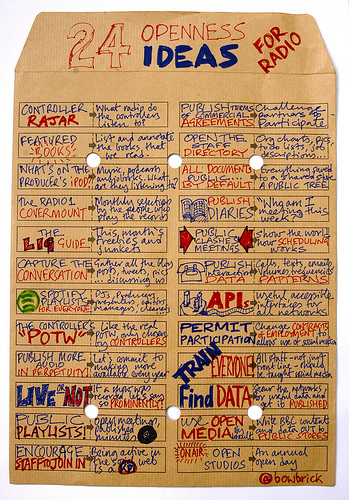 24 OPENNESS IDEAS FOR RADIO
CONTROLLER RAJAR
What radio do the controllers listen to?
FEATURED "BOOKS"
List and annotate the books that we read.
WHAT'S ON THE PRODUCER'S iPOD?
Music, podcasts, audiobooks. What are they listening to?
THE RADIO1 COVERMOUNT
Monthly
THE LIG GUIDE
This month's freebies and junkets
CAPTURE THE CONVERSATION
Gather all the blog posts, tweets, pics
SPOTIFY PLAYLISTS FOR EVERYONE
DJs, Producers
managers, cleaners
THE CONTROLLER'S "POTW"
Like the real POTW, only chosen by CONTROLLERS
PUBLISH MORE AUDIO IN PERPETUITY!
Let's commit to making more available every year
LIVE OR NOT
If a show was recorded, let's say so PROMINENTLY!
PUBLIC PLAYLISTS!
Open meetings, published minutes
ENCOURAGE STAFF TO JOIN IN
Being active in the social web is a
PUBLISH TERMS OF COMMERCIAL AGREEMENTS
Challenge partners to participate
OPEN THE STAFF DIRECTORY
Org charts, pics, job lists, job descriptions...
ALL DOCUMENTS PUBLIC BY DEFAULT
Everything saved to a shared drive
A PUBLIC TREE
PUBLISH DIARIES
"Who am I meeting this week"
PUBLIC CLASHES MEETING
Show the world how SCHEDULING WORKS
PUBLISH interaction DATA
Calls, texts, emails
Volumes, frequencies
PATTERNS
APIs
Useful, accessible interfaces for all networks
PERMIT PARTICIPATION
Change CONTRACTS of EMPLOYMENT to allow use of social media
TRAIN EVERYONE
All staff - not just front line - should be taught social media
Find DATA
Scour the networks for useful data and get it PUBLISHED
USE OPEN MEDIA by default
Write BBC content and data OUT to PUBLIC STORES
ON AIR OPEN STUDIOS
An annual open day
@bowbrick